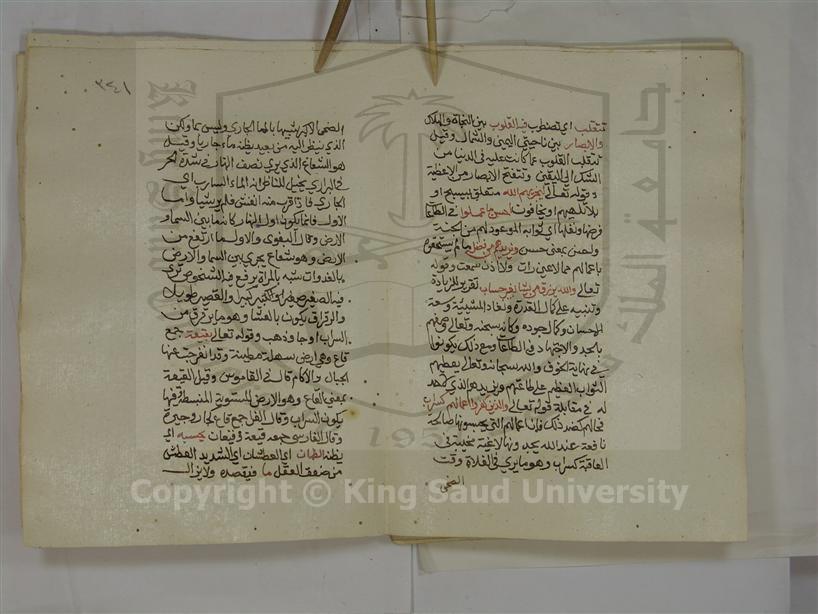 تتقلب اي تضطرب فيه القلوب بين النجاة والهلاك
والابصار بين ناحيتي اليمين والشمال وقيل
تتقلب القلوب عما كانت عليه في الدنيا من
الشك الى اليقين وتنفتح الابصار من الاغطية
وقوله تعالى ليجزيهم الله متعلق بيسبح او
بلا تلهيهم او يخافون احسن ما عملوا في الطاعات
فرضها ونفلها اي ثوابه الموعود لهم من الجنة
واحسن بمعنى حسن ويزيدهم من فضله ما لم يستحقوه
باعمالهم مما لا عين رات ولا اذن سمعت وقوله
تعالى والله يرزق من يشاء بغير حساب تقرير للزيادة
وتنبيه على كمال القدرة ونفاذ المشيئة وسعة
الاحسان وكمال جوده وكانه سبحانه وتعالى وصفهم
بالجد والاجتهاد في الطاعات ومع ذلك يكونوا
في نهاية الخوف والله سبحانه وتعالى يعطيهم
الثواب العظيم على طاعتهم ويزيدهم الذي
له في مقابلة قوله تعالى والذين كفروا اعمالهم كسراب
فحالهم بضد ذلك فان اعمالهم التي يحسبونها صالحة
نافعة عند الله يجدونها لاغية مخيبة في
العاقبة كسراب وهو ما يرى في الفلاة وقت
الضحى
٣٤١
الضحى الاكبر شبيها بالماء الجاري وليس بماء ولكن
الذي ينظر اليه من بعيد يظنه ماء جاريا وقيل
هو الشعاع الذي يرى نصف النهار في شدة الحر
في البراري يخيل للناظر انه الماء السارب اي
الجاري فاذا قرب منه انفش فلم ير شيا واما
الاول فانما يكون اول النهار كانه ما بين السماء و
الارض وقال البغوي والاول ما ارتفع من
الارض وهو شعاع يجري بين السماء والارض
بالغدوات شبه بالمراة يرفع فيه الشخوص يرى
فيه الصغير كبيرا والقصير طويلا
والرقراق يكون بالعشاء وهو ما يرقرق من
السراب اي جاء وذهب وقوله تعالى بقيعة جمع
قاع وهي ارض سهلة مطمئنة وقد انفرجت عنها
الجبال والاكام قاله في القاموس وقيل القيعة
بمعنى القاع وهو الارض المستوية المنبسطة وفيها
يكون السراب وقال الفرا جمع قاع كجار وجيرة
وقال الفارسي جمعه قيعة وقيعان يحسبه اي
يظنه الظمان اي العطشان اي الشديد العطش
من ضعف العقل ما فيقصده ولا يزال
Copyright © King Saud University
جامعة الملك سعود
195